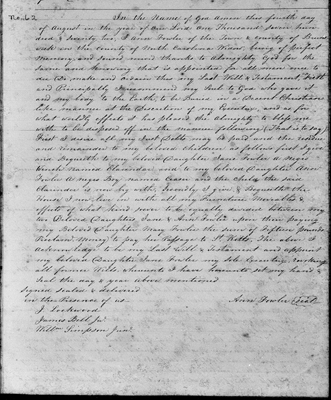 In the Name of God Amen this fourth day
of August in the year of our Lord One Thousand Seven hun-
dred & Seventy two I Ann Fowler of the Town & County of Bruns-
wick in the County of North Carolina Widow, being of perfect
Memory, and Sound mind thanks to Almighty God for the
same and knowing that is appointed for all persons once to
die Do make and ordain this my Last Will & Testament First
and Principally I recommend my Soul to God who gave it
and my body to the Earth to be Buried in a Decent Christian
like manner at the Discretion of my Executor, and as for
what worldly effects it has pleased the Almighty to bless me
with to be disposed off in the manner following (That is to say)
First I desire all my Just Debts may be paid and the residue
and remainder to my beloved children as follows first I give
and Bequeath to my beloved Daughter Jane Fowler a Negro
wench named Clarinda, and to my beloved Daughter Ann
Fowler a Negro Boy named the Child the said
Clarinda is now big with, Secondly I give & Bequeath the
House I now live in with all my Furniture Moveables &
effects of what kind soever to be equally divided between my
two Beloved Daughters Jane & Ann Fowler upon them paying
my Beloved Daughter Mary Fowler the sum of Fifteen pounds
Proclam Money to pay her Passage to The above I
acknowledge to be my Last Will & testament and appoint
my beloved Daughter Jane Fowler my Sole Executrix revoking
all former Wills. Whereunto I have hereunto set my hand &
Seal the day & year above mentioned
Signed Sealed & delivered
in the Presence of us. Ann Fowler (Seal)
J. Lockwood
James Bell Jr.
Willm Simpson Junr